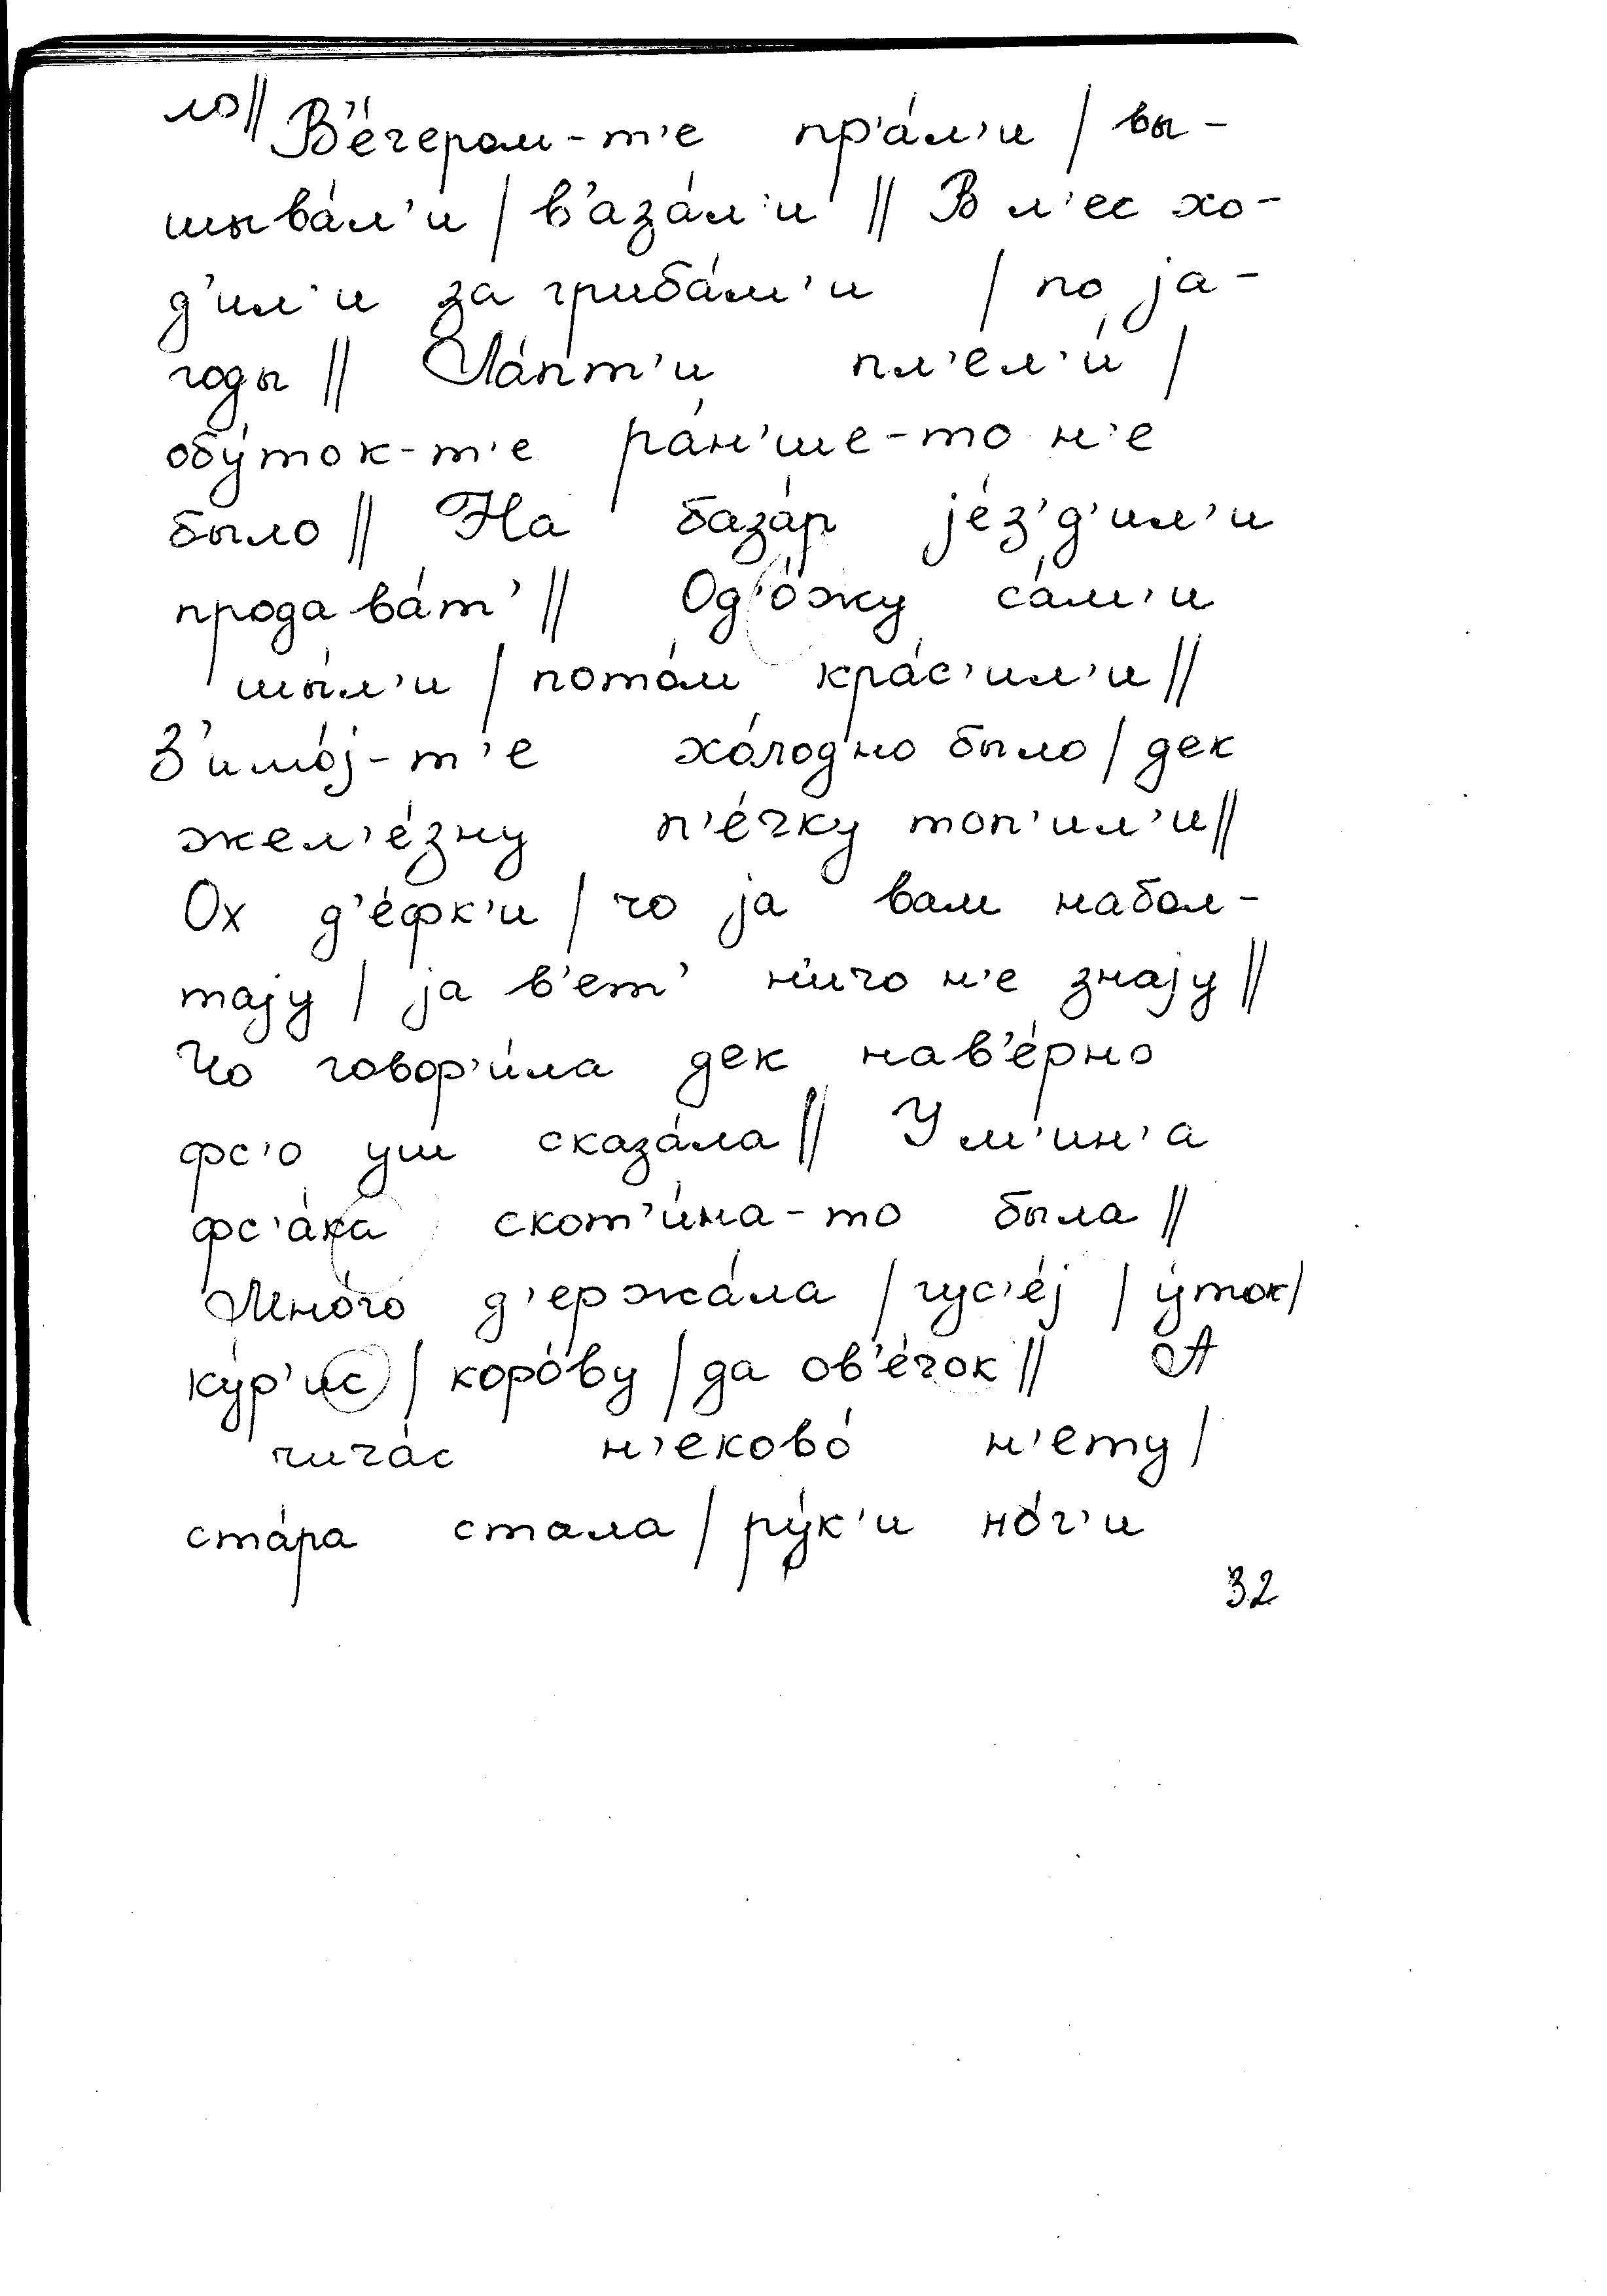 ло||
В'éчером-т'е пр'áл'и | вы-
шывáл'и | в'азáл'и || В л'ес хо-
д'ил'и за грибáм'и | по jа-
годы || Лáпт'и пл'ел'и́ |
обýток-т'е рáн'ше-то н'е
было || На базáр jéз'д'ил'и
продавáт' || Од'óжу сáм'и
шы́л'и | потóм крáс'ил'и ||
З'имój-т'е хóлодно было | дек
жел'éзну п'éчку топ'ил'и ||
Ох д'éфк'и | чо jа вам набол-
таjу | jа в'ет' н'ичо н'е знаjу ||
Чо говор'и́ла дек нав'éрно
фс'о уш сказáла || У м'ин'а
фс'áка скот'и́на-то была ||
Мнóго д'ержáла | гус'éj | ýток |
кýр'ис | корóву | да ов'éчок || А
чичáс н'ековó н'ету |
стáра стала | рýк'и нóг'и
32